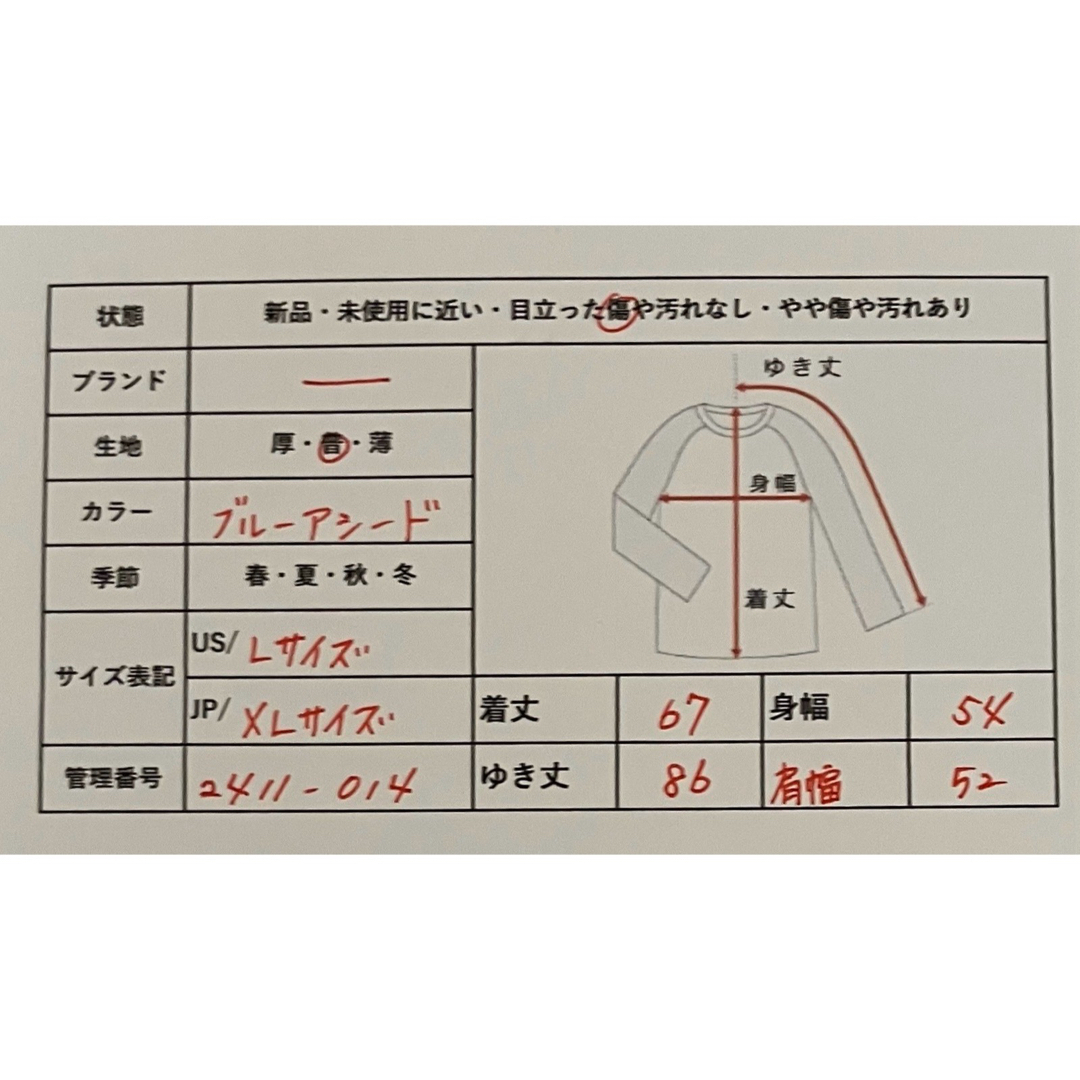 状態 新品・未使用に近い・目立った傷や汚れなし・やや傷や汚れあり
ブランド ー
生地 厚・普・薄
カラー ブルーアシード
季節 春・夏・秋・冬
サイズ表記
US/ Lサイズ
JP/ XLサイズ
管理番号 2411-014
ゆき丈
身幅
着丈
着丈 67 身幅 54
ゆき丈 86 肩幅 52